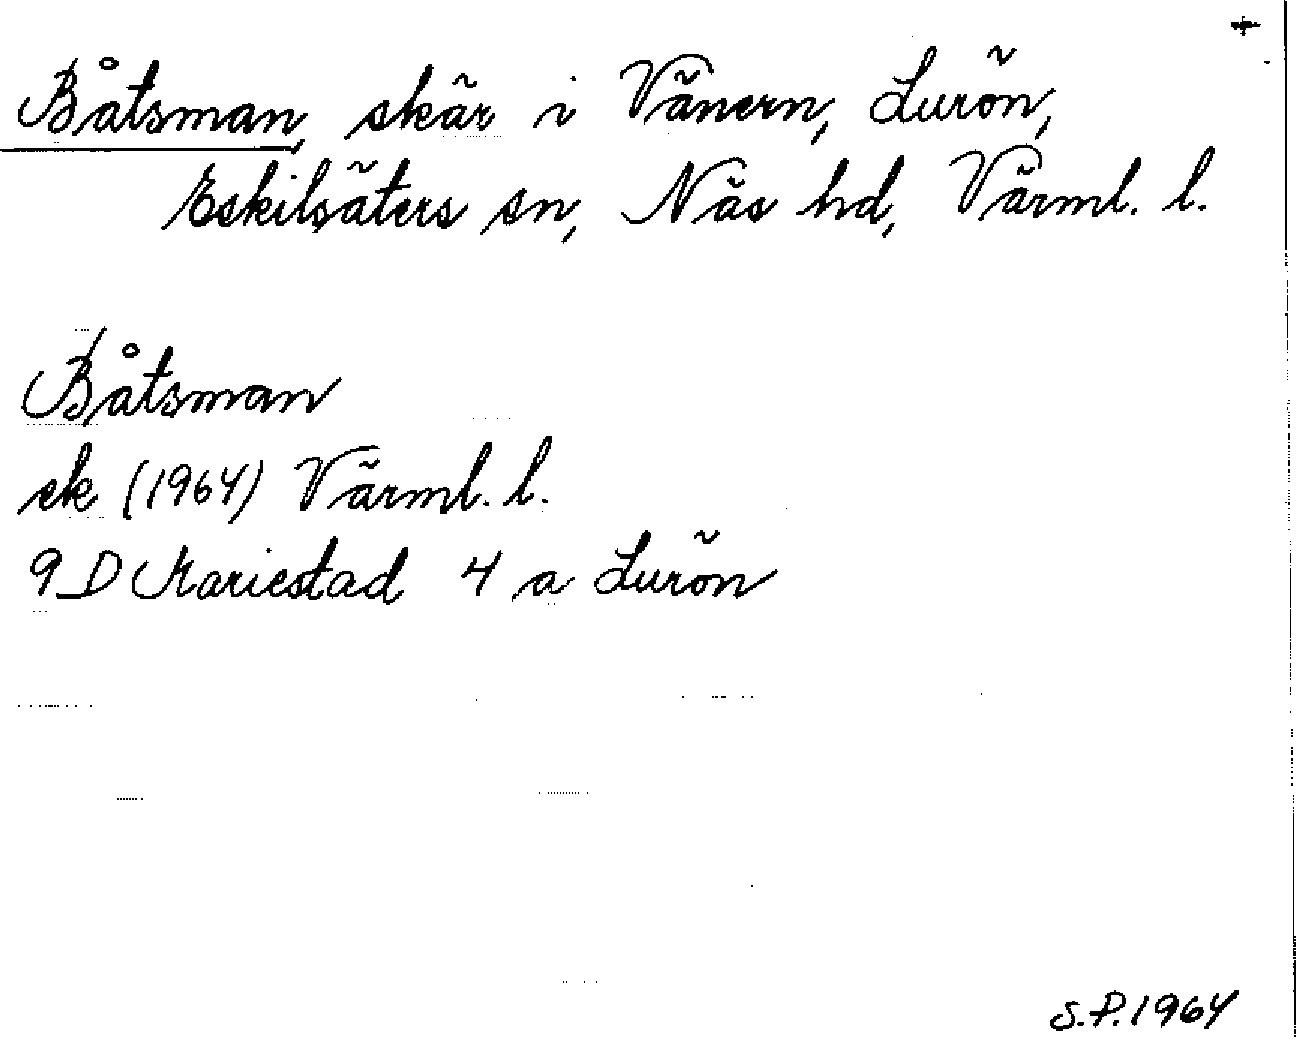 Båtsman, skär i Vänern, Lurön,
Eskilsäters sn, Näs hd, Värml. l.
Båtsman
ek (1964) Värml. l.
9D Mariestad 4 a Lurön
S.P. 1964